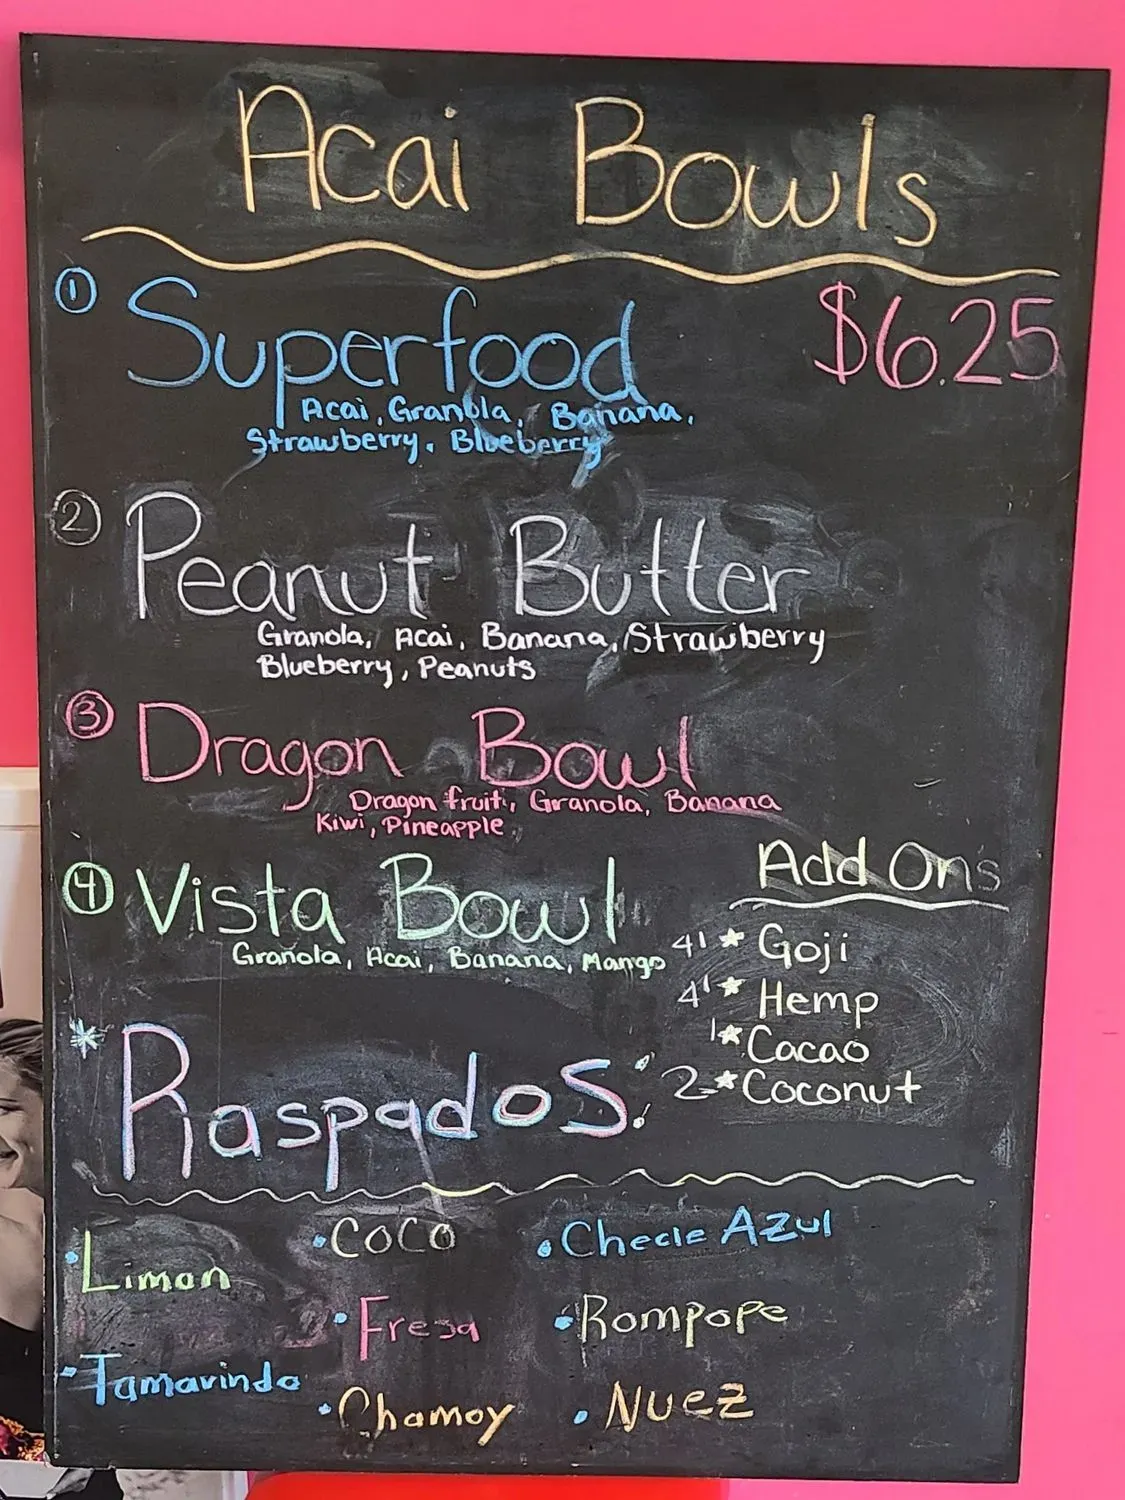 Acai Bowls
① Superfood $6.25
Acai, Granola, Banana,
Strawberry, Blueberry
② Peanut Butter
Granola, Acai, Banana, Strawberry
Blueberry, Peanuts
③ Dragon Bowl
Dragon fruit, Granola, Banana
Kiwi, Pineapple
④ Vista Bowl
Granola, Acai, Banana, Mango
Add Ons
★ Goji
★ Hemp
1 ★ Cacao
2 ★ Coconut
* Raspados:
• Limon
• Tamarindo
• Coco
• Fresa
• Chamoy
• Checle Azul
• Rompope
• Nuez